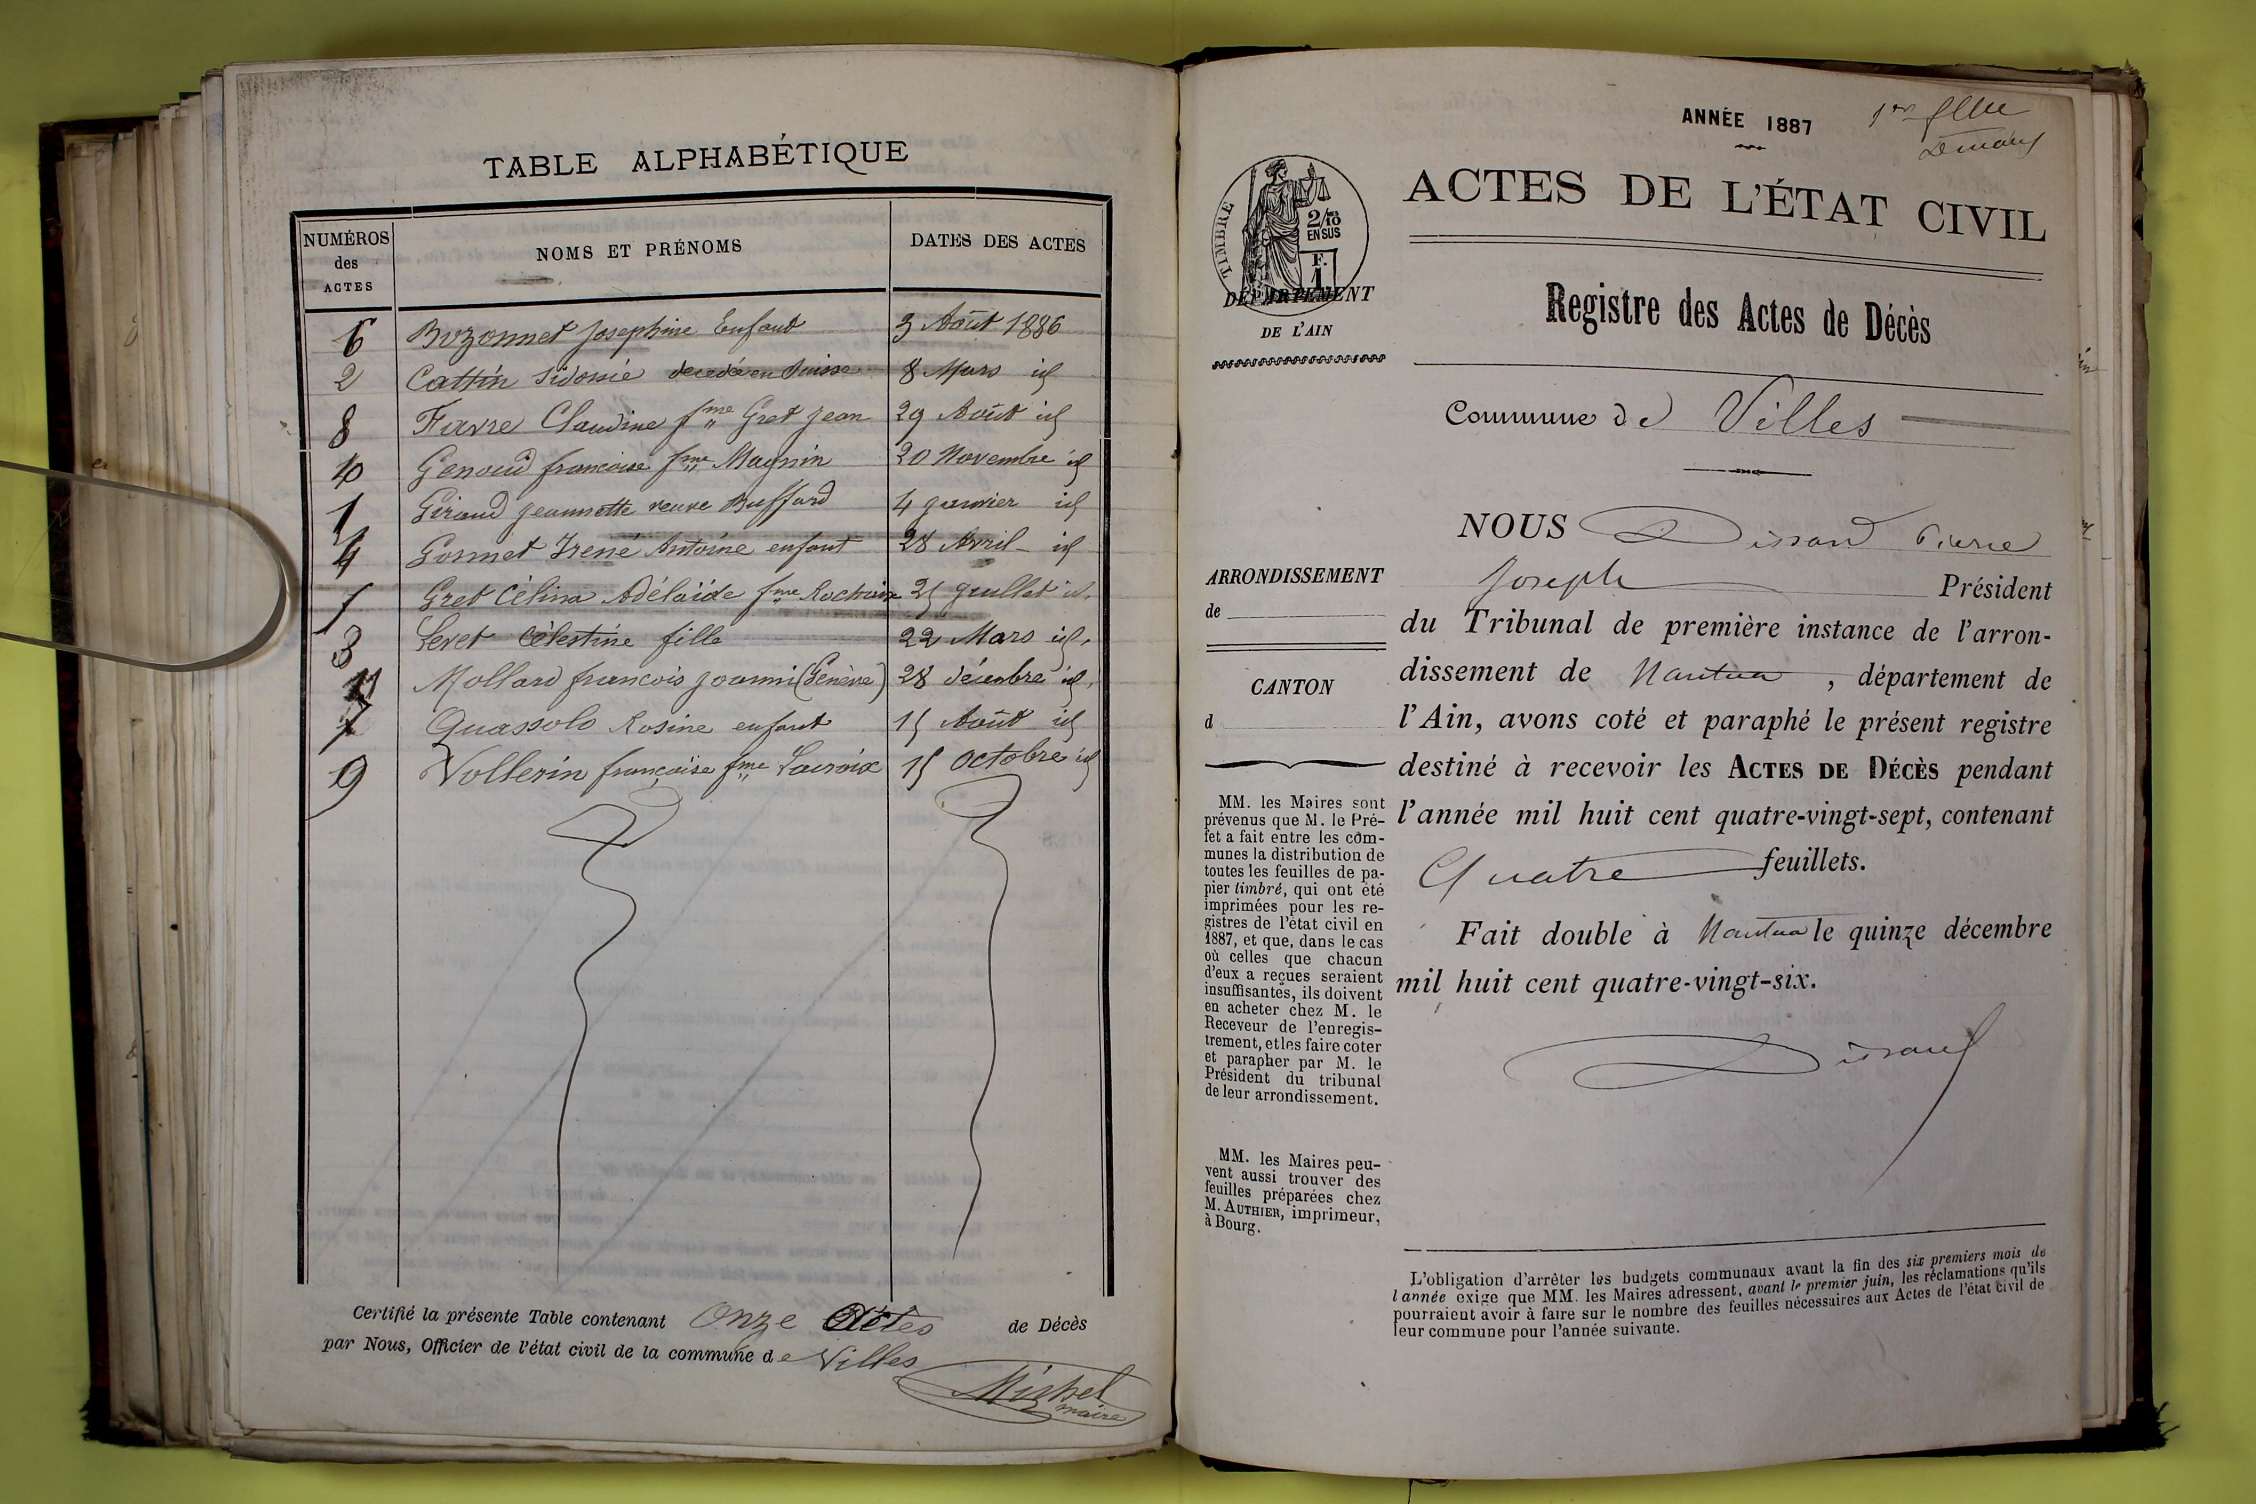 TABLE ALPHABÉTIQUE
NUMÉROS des ACTES
NOMS ET PRÉNOMS
DATES DES ACTES
6 Buzonnet Josephine Enfant 3 Août 1886
2 Cattin Sidonie decedée en Suisse 8 Mars id
8 Favre Claudine fme Gret Jean 29 Août id
10 Genoud francoise fme Magnin 20 Novembre id
1 Giraud Jeannette veuve Buffard 4 janvier id
4 Gonnet Irené Antoine enfant 28 Avril id
5 Gret Célina Adélaïde fme Rochaix 25 juillet id.
3 Levet Célestine fille 22 Mars id.
11 Mollard francois Joanni (Génève) 28 décembre id.
7 Quassolo Rosine enfant 15 Août id
9 Vollerin françoise fme Lacroix 15 Octobre id
Certifié la présente Table contenant Onze Actes de Décès
par Nous, Officier de l'état civil de la commune de Villes
Michel
maire
ANNÉE 1887
1er
TIMBRE
2/10
EN SUS
F.
1
ACTES DE L'ÉTAT CIVIL
DÉPARTEMENT
DE L'AIN
Registre des Actes de Décès
Commune de Villes
NOUS Dissard Pierre
Joseph Président
ARRONDISSEMENT
de
du Tribunal de première instance de l'arron-
dissement de Nantua, département de
CANTON
d
l'Ain, avons coté et paraphé le présent registre
destiné à recevoir les ACTES DE DÉCÈS pendant
l'année mil huit cent quatre-vingt-sept, contenant
Quatre feuillets.
Fait double à Nantua le quinze décembre
mil huit cent quatre-vingt-six.
Dissard
MM. les Maires sont
prévenus que M. le Pré-
fet a fait entre les com-
munes la distribution de
toutes les feuilles de pa-
pier timbré, qui ont été
imprimées pour les re-
gistres de l'état civil en
1887, et que, dans le cas
où celles que chacun
d'eux a reçues seraient
insuffisantes, ils doivent
en acheter chez M. le
Receveur de l'enregis-
trement, et les faire coter
et parapher par M. le
Président du tribunal
de leur arrondissement.
MM. les Maires peu-
vent aussi trouver des
feuilles préparées chez
M. AUTHIER, imprimeur,
à Bourg.
L'obligation d'arrêter les budgets communaux avant la fin des six premiers mois de
l'année exige que MM. les Maires adressent, avant le premier juin, les réclamations qu'ils
pourraient avoir à faire sur le nombre des feuilles nécessaires aux Actes de l'état civil de
leur commune pour l'année suivante.